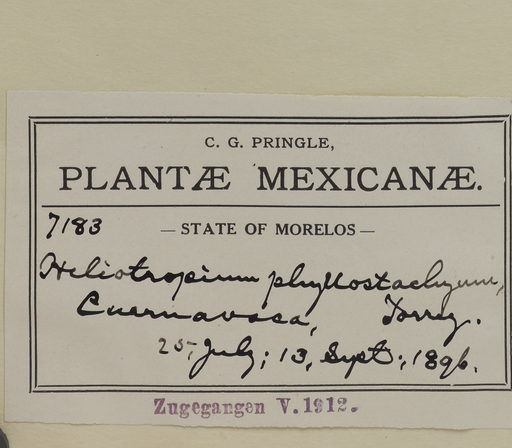 C. G. PRINGLE,
PLANTÆ MEXICANÆ.
7183 — STATE OF MORELOS —
Heliotropium phyllostachyum,
Cuernavaca, Torrey.
25, July; 13, Sept., 1896.
Zugegangen V. 1912.